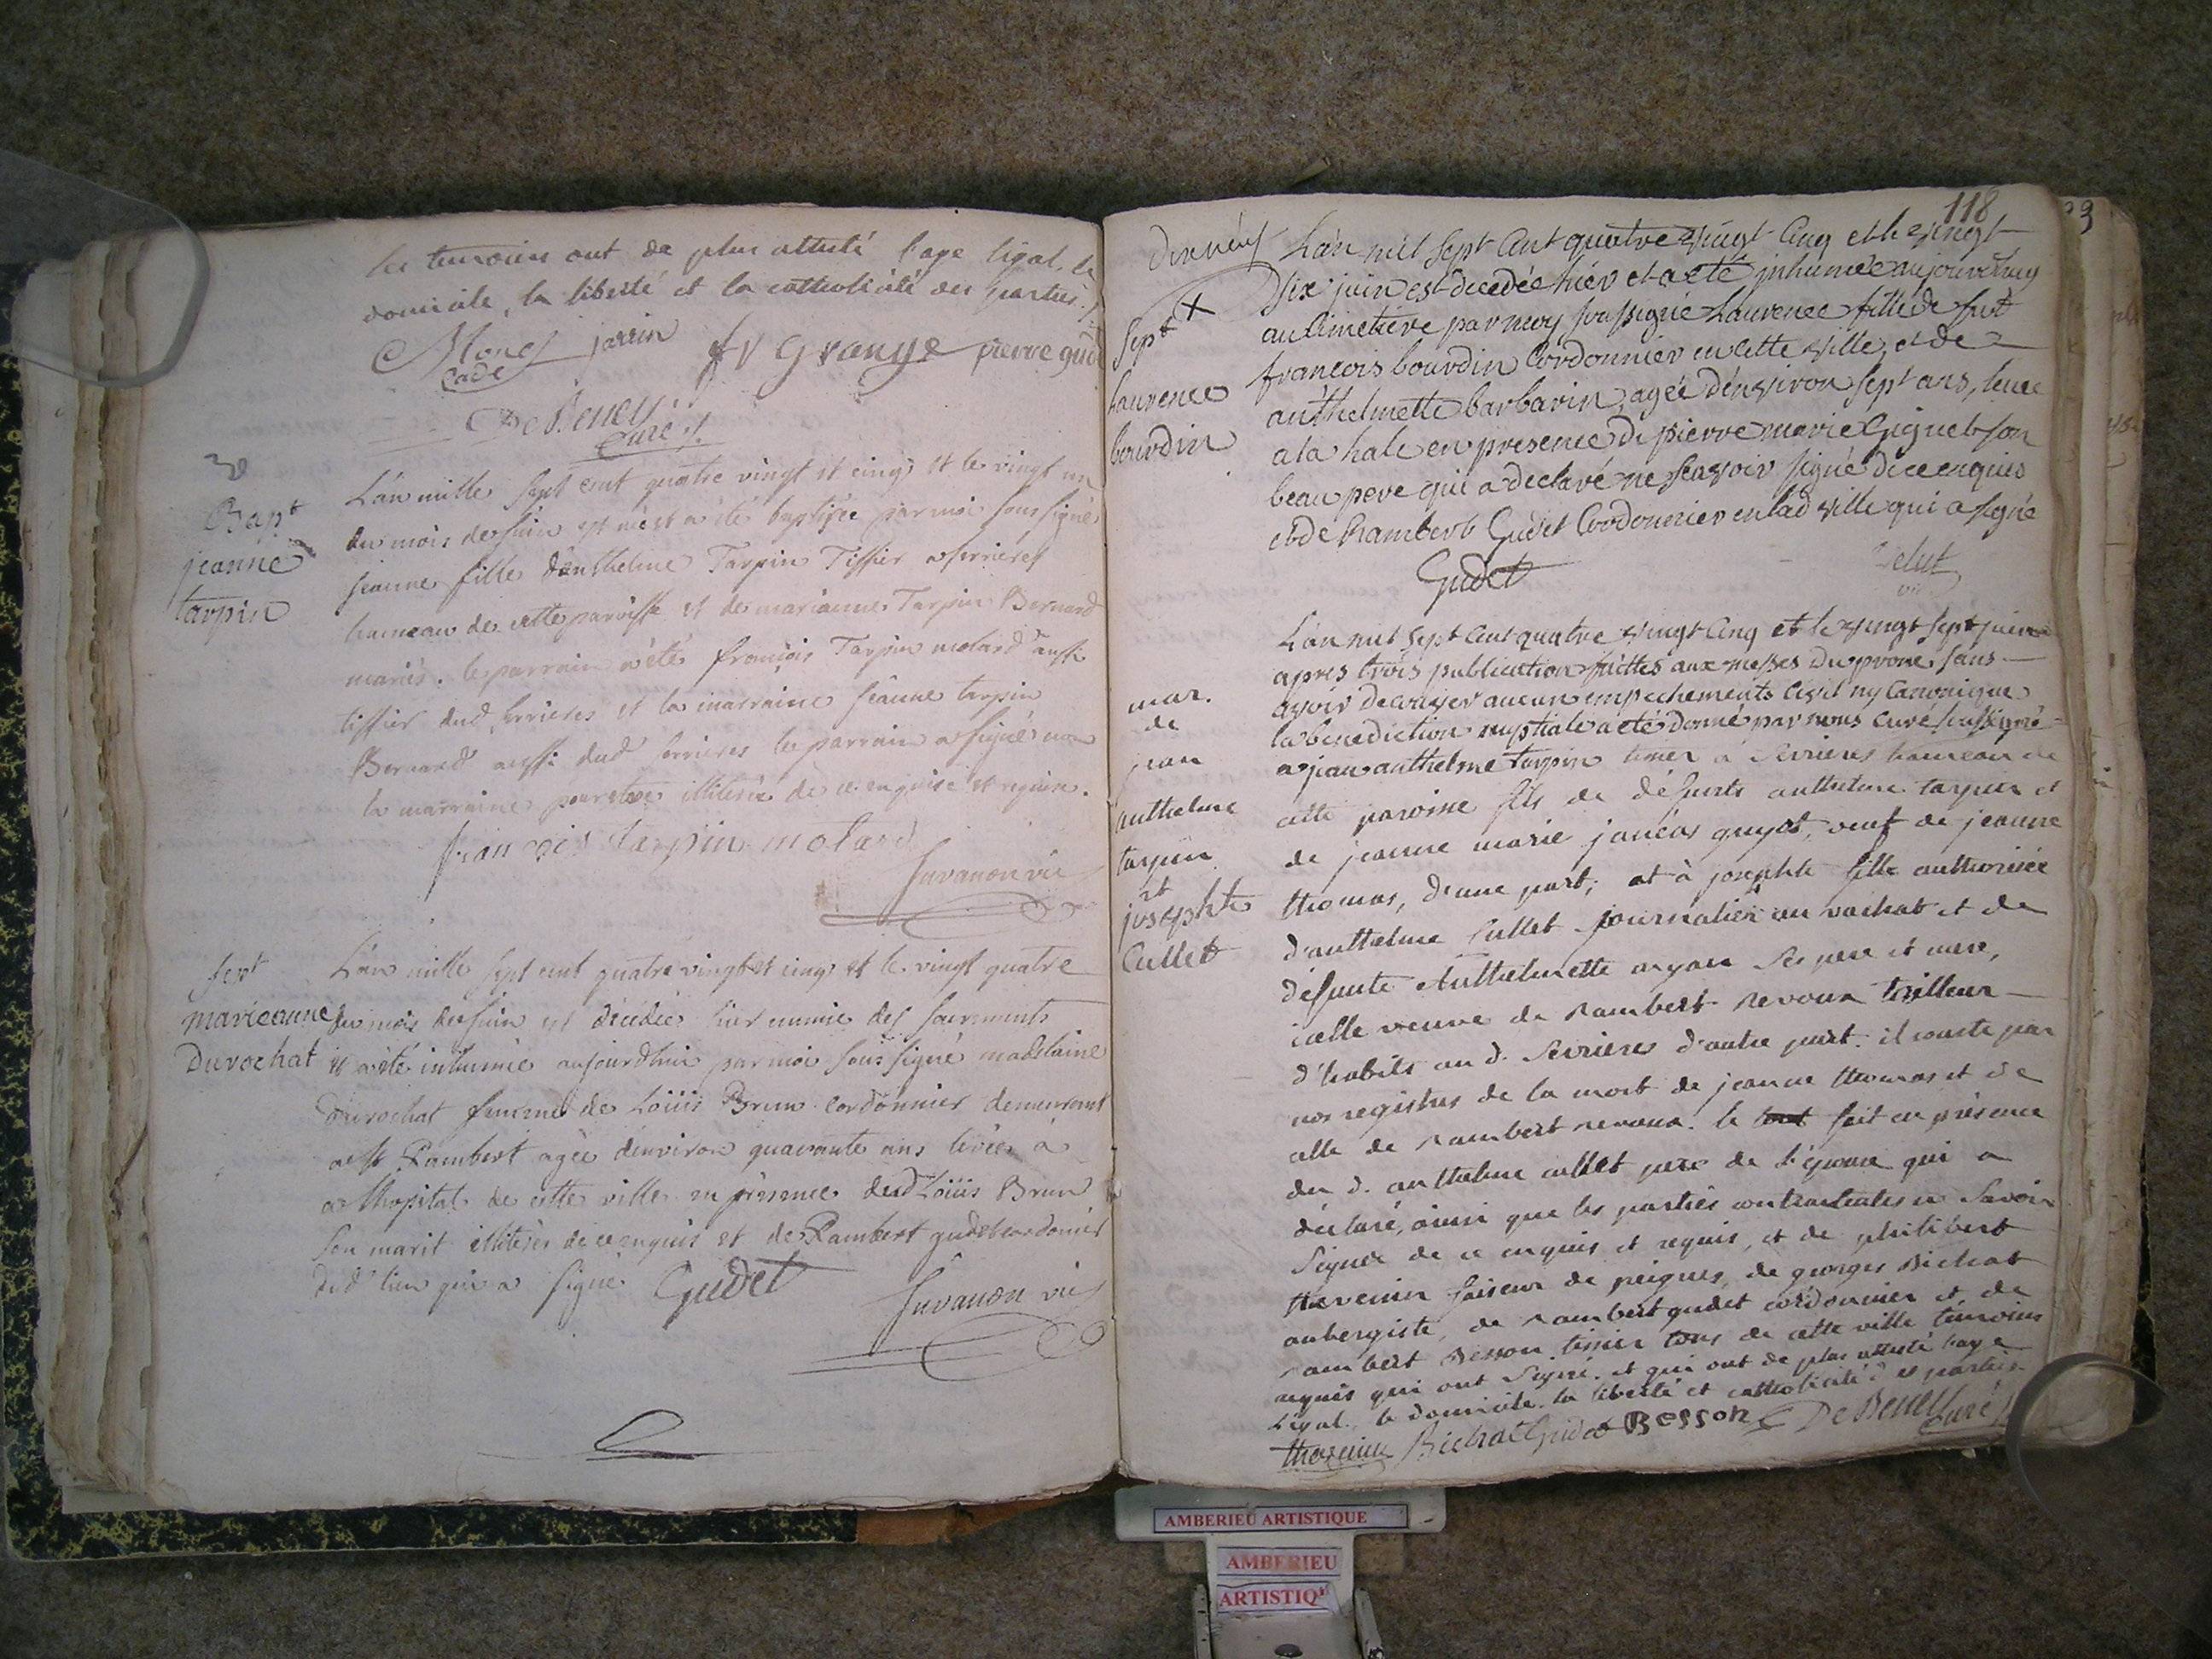 les temoins ont de plus attesté l'age légal, le
domicile, la liberté et la catholicité des parties ./.
jarrin fr Grange pierre gudet
Cadet
De Beney
Curé ./.
Bapt
jeanne
tarpin
L'an mille sept cent quatre vingt et cinq et le vingt un
du mois de juin est née et a été baptisée par moi soussigné
jeanne fille d'anthelme Tarpin Tissier a serrieres
hameau de cette paroisse et de marianne Tarpin Bernard
mariés. le parrain a été françois Tarpin molard aussi
tissier dud serrieres et la marraine jeanne tarpin
Bernard aussi dud serrieres le parrain a signé non
la marraine pour etre illiterée de ce enquise et requise.
francois tarpin molard
Juvanon vic
sept
marieanne
Durochat
L'an mille sept cent quatre vingt et cinq et le vingt quatre
du mois de juin est décédée hier munie des sacrements
et a été inhumée aujourdhui par moi soussigné madelaine
durochat femme de Loüis Brun cordonnier demeurant
a st Rambert agée d'environ quarante ans levée à
a lhopital de cette ville en présence dud Loüis Brun
son marit illiteré de ce enquis et de Rambert gudet cordonier
dud lieu qui a signé Gudet
Juvanon vic
118
sept
Laurence
bourdin
L'an mil sept cent quatre vingt cinq et le vingt
Six juin est decedée hier et a eté inhumée aujourdhuy
au Cimetiere par moy soussigné Laurence fille de fut
francois bourdin Cordonnier en cette ville et de
anthelmette barbarin, agée d'environ sept ans, levée
a la hale en presence de pierre marie Giguet son
beau pere qui a declaré ne scavoir signé de ce enquis
et de Rambert Gudet Cordonnier en lad ville qui a signé
Gudet
Delut
vic
mar.
de
jean
anthelme
tarpin
et
josephte
Cullet
L'an mil sept cent quatre vingt cinq et le vingt sept juin
apres trois publication faittes aux messes du prone sans
avoir decouver aucun empechements civil ny Canonique
la benediction nuptiale a eté donné par nous Curé soussigné
a jean anthelme tarpin tissier à serrieres hameau de
cette paroisse fils de défunts anthelme tarpin et
de jeanne marie janéas guyot, veuf de jeanne
thomas, d'une part; et à josephte fille authorisée
d'anthelme Cullet journalier au vachat et de
défunte Anthelmette ses pere et mere,
icelle veuve de Rambert Revoux tailleur
d'habits au d. serrieres d'autre part. il conste par
nos registres de la mort de jeanne thomas et de
celle de Rambert revoux. le fait en présence
du d. anthelme cullet pere de l'épouse qui a
déclaré, ainsi que les parties contractantes ne savoir
signer de ce enquis et requis, et de philibert
thevenin faiseur de peignes, de georges Bichat
aubergiste, de Rambert gudet cordonnier et de
Rambert Besson tissier tous de cette ville témoins
requis qui ont signé. et qui ont de plus attesté l'age
légal. le domicile. la liberté et catholicité des parties.
thevenin Bichat Gudet Besson De Beney
Curé ./.
AMBERIEU ARTISTIQUE
AMBERIEU
ARTISTIQ